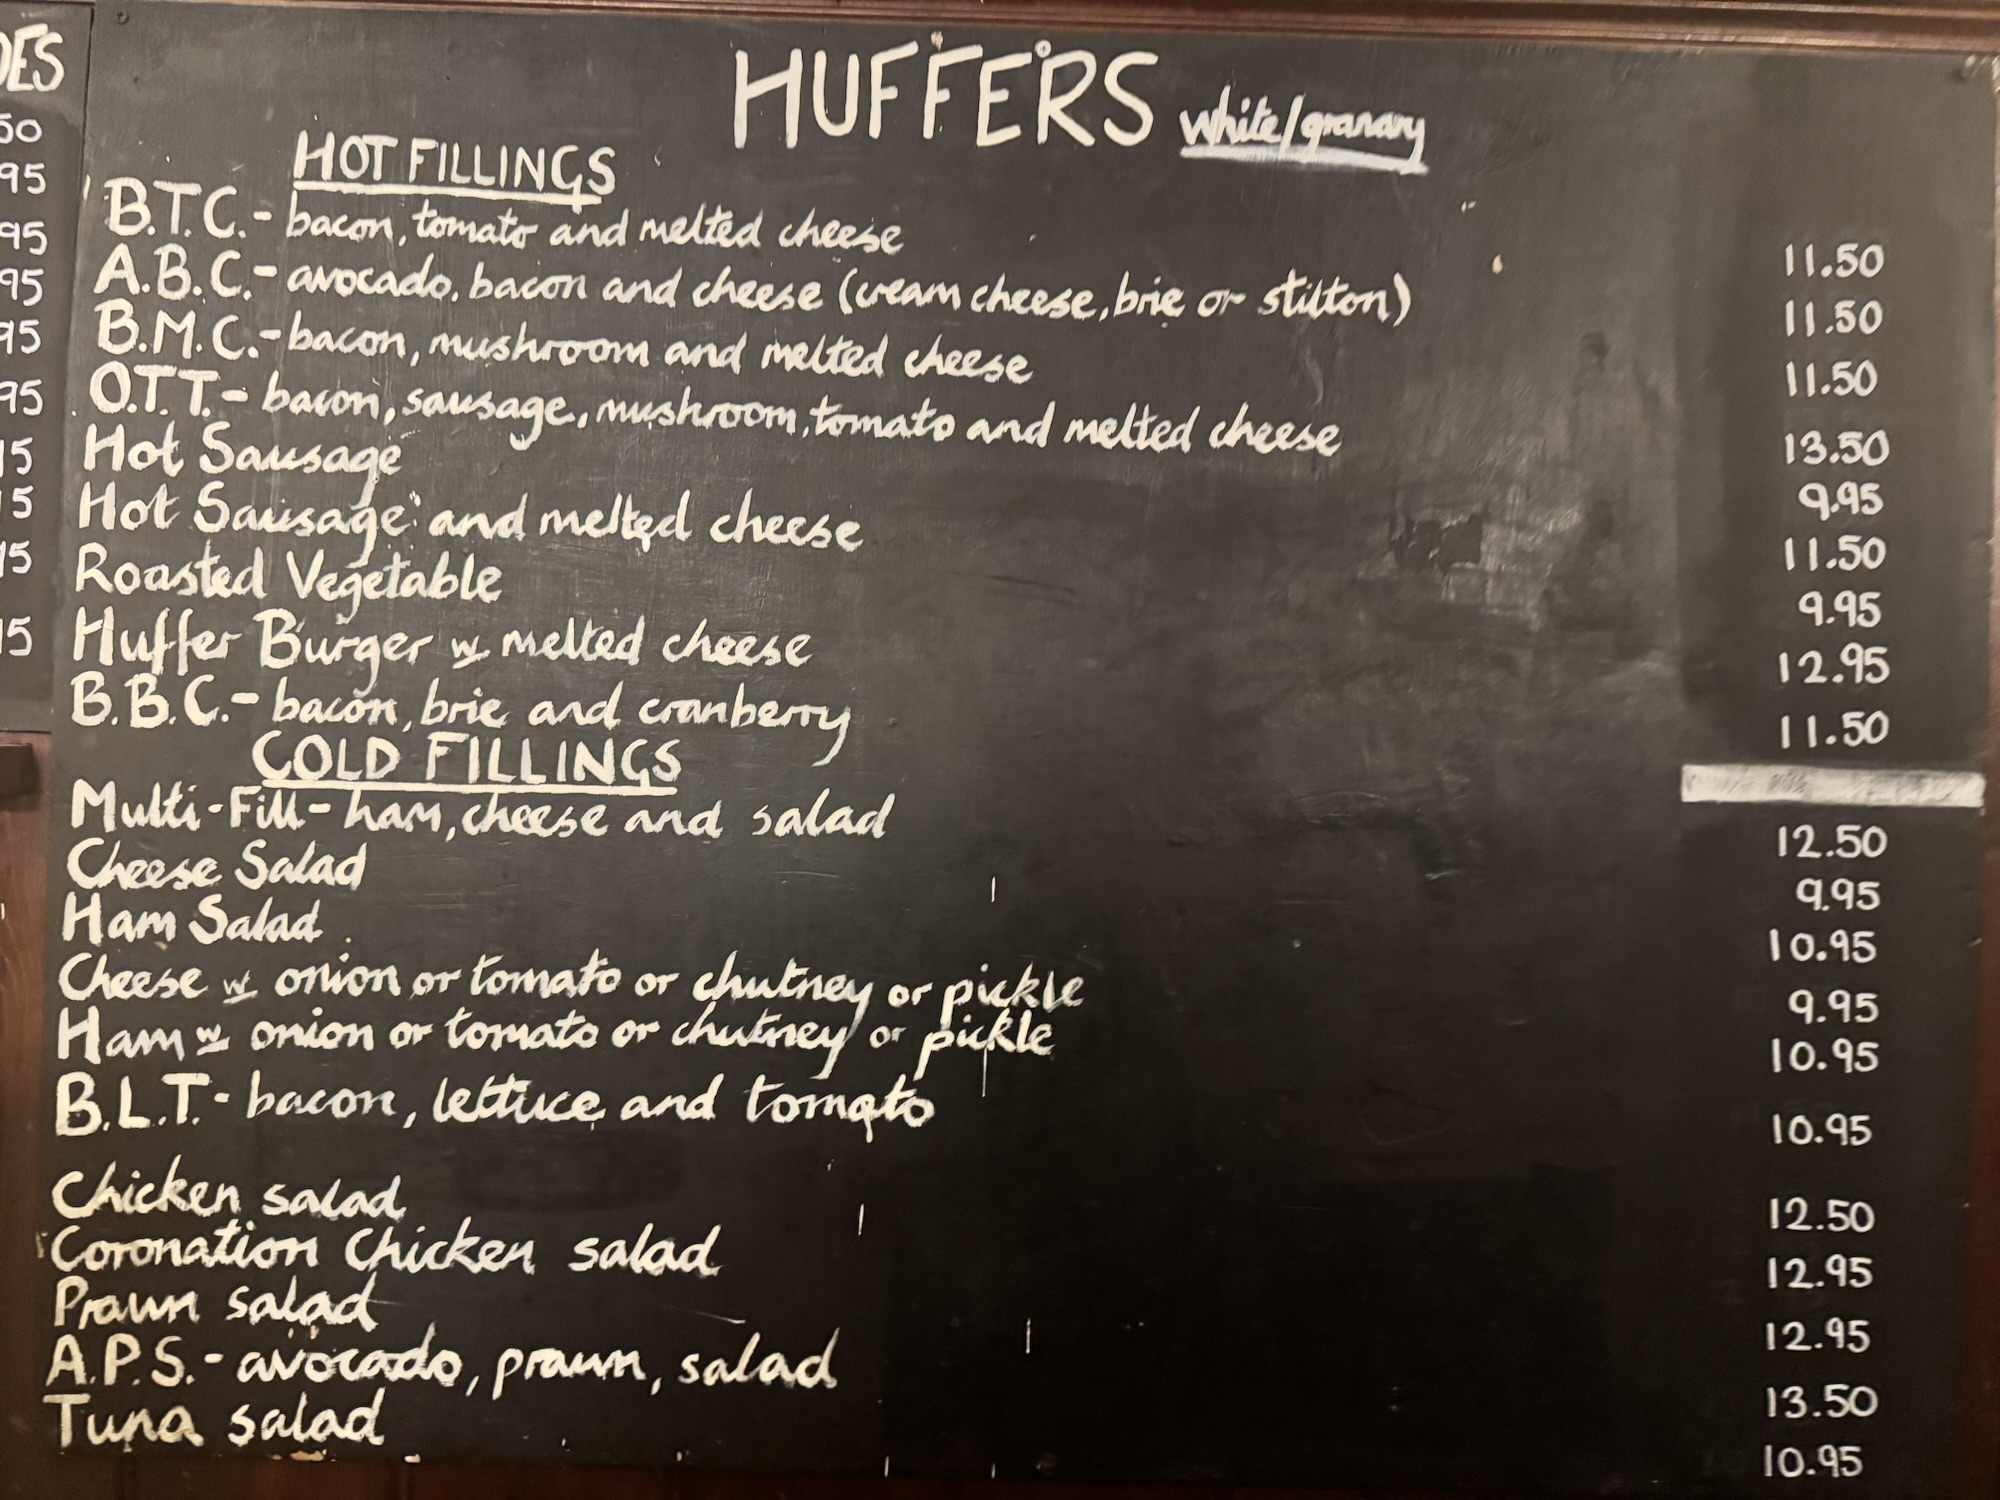 DES
HUFFERS white/granary
HOT FILLINGS
B.T.C. - bacon, tomato and melted cheese 11.50
A.B.C. - avocado, bacon and cheese (cream cheese, brie or stilton) 11.50
B.M.C. - bacon, mushroom and melted cheese 11.50
O.T.T. - bacon, sausage, mushroom, tomato and melted cheese 13.50
Hot Sausage 9.95
Hot Sausage and melted cheese 11.50
Roasted Vegetable 9.95
Huffer Burger w melted cheese 12.95
B.B.C. - bacon, brie and cranberry 11.50
COLD FILLINGS
Multi-Fill - ham, cheese and salad 12.50
Cheese Salad 9.95
Ham Salad 10.95
Cheese w onion or tomato or chutney or pickle 9.95
Ham w onion or tomato or chutney or pickle 10.95
B.L.T. - bacon, lettuce and tomato 10.95
Chicken salad 12.50
Coronation Chicken salad 12.95
Prawn salad 12.95
A.P.S. - avocado, prawn, salad 13.50
Tuna salad 10.95
50
95
95
95
95
95
15
15
15
15